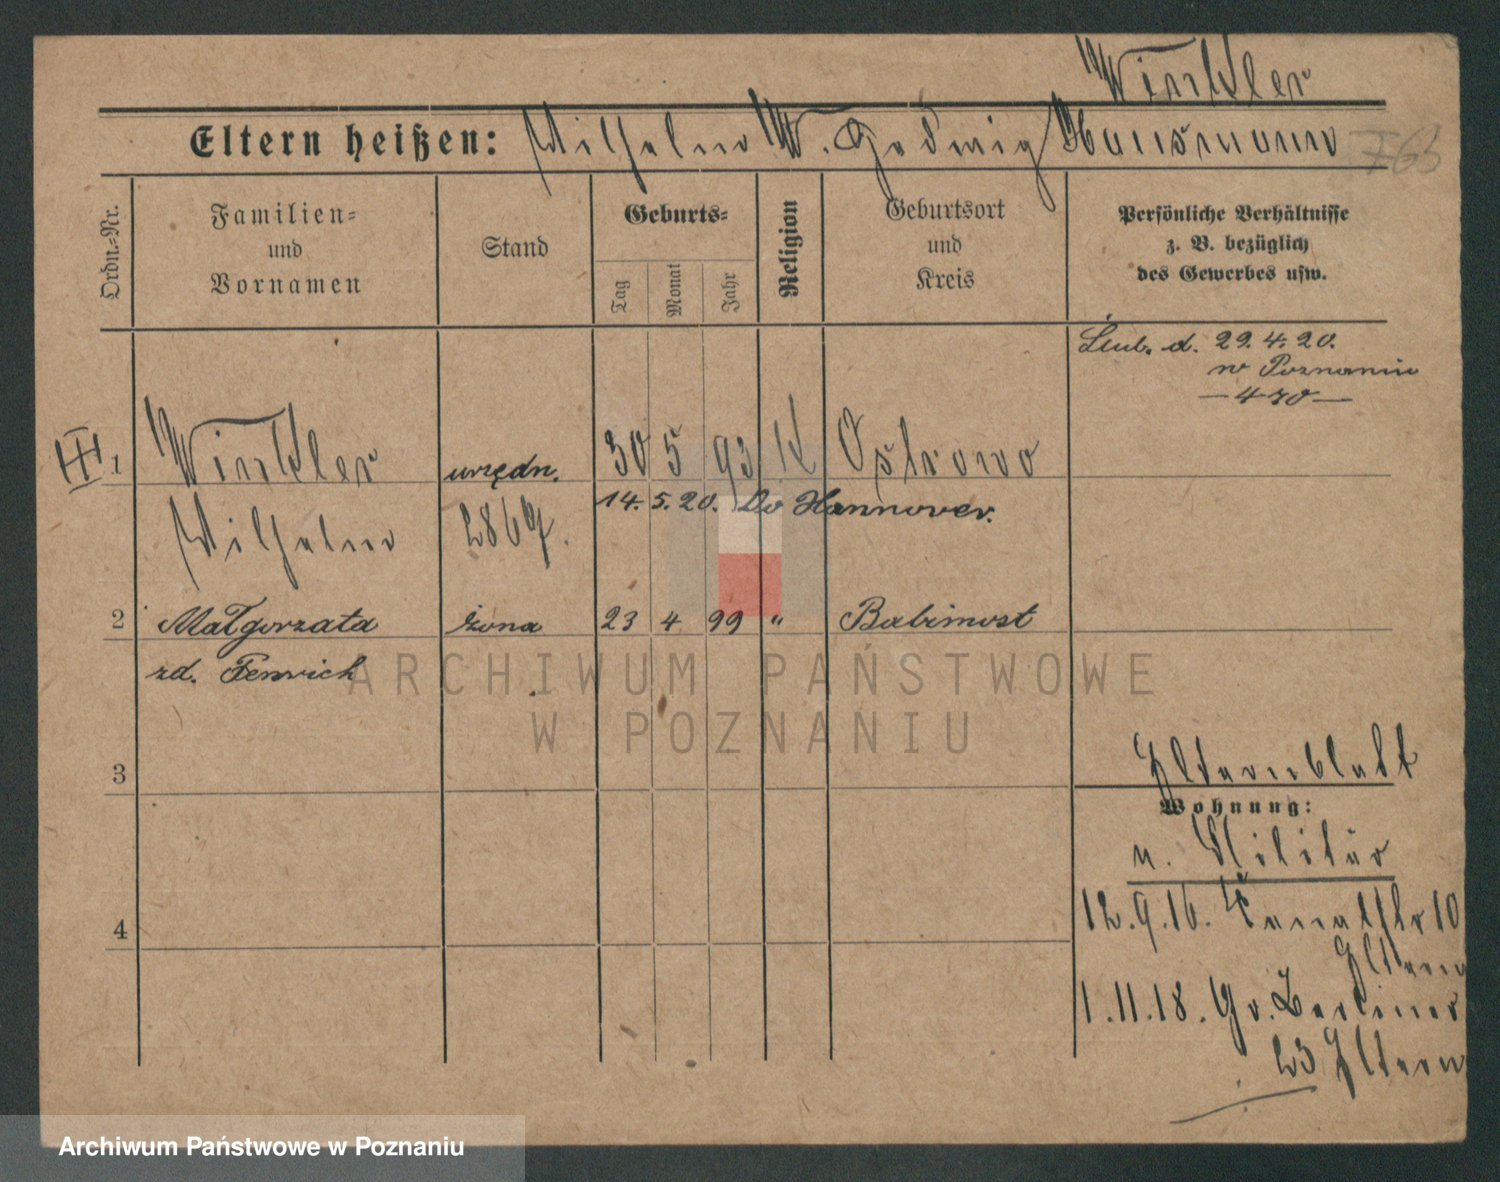 Winkler
Eltern heißen: Wilhelm W. Hedwig Hausmann 763
Ordn.-Nr.
Familien-
und
Vornamen
Stand
Geburts-
Tag
Monat
Jahr
Religion
Geburtsort
und
Kreis
Persönliche Verhältnisse
z. B. bezüglich
des Gewerbes usw.
Ślub. d. 29.4.20.
w Poznaniu
— 470 —
III 1 Winkler urzędn. 30 5 93 K Ostrowo
14. 5. 20. Do Hannover.
Wilhelm
2 Małgorzata żona 23 4 99 " Babimost
zd.
3
4
Elternblatt
Wohnung:
u. Militär
12.9.16. Kanalstr 10
Eltern
1.11.18. Gr. Berliner
23 Eltern
ARCHIWUM PAŃSTWOWE
W POZNANIU
Archiwum Państwowe w Poznaniu